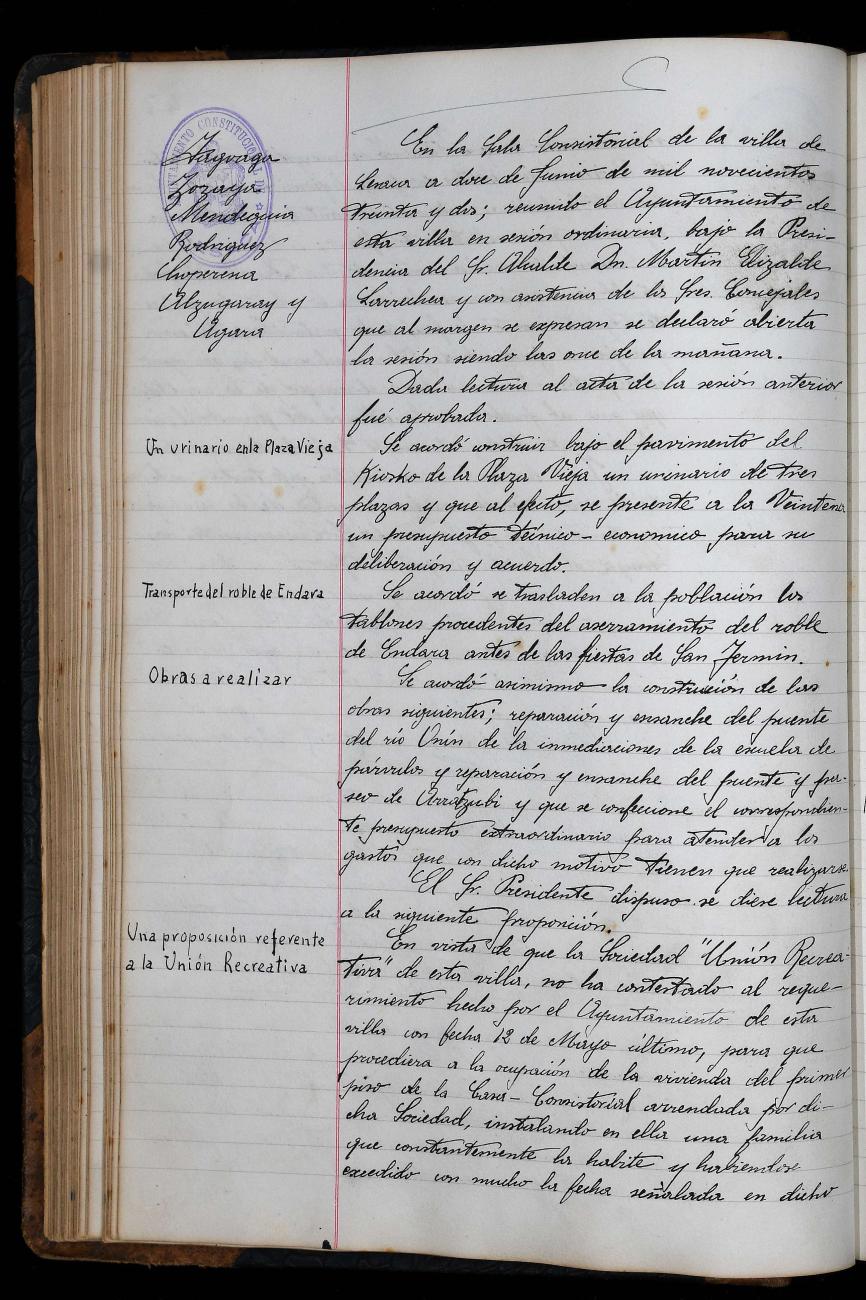 AYUNTAMIENTO CONSTITUCIONAL
Yagoaga
Zozaya
Mendeguia
Rodriguez
Choperena
Alzugaray y
Agara
En la Sala Consistorial de la villa de
Lesaca a doce de Junio de mil novecientos
treinta y dos; reunido el Ayuntamiento de
esta villa en sesión ordinaria, bajo la Presi-
dencia del Sr. Alcalde Dn. Martin Elizalde
Larrechea y con asistencia de los Sres. Concejales
que al margen se expresan se declaró abierta
la sesión siendo las once de la mañana.
Dada lectura al acta de la sesión anterior
fué aprobada.
Un urinario en la Plaza Vieja
Se acordó construir bajo el pavimento del
Kiosko de la Plaza Vieja un urinario de tres
plazas y que al efecto, se presente a la Veintena
un presupuesto técnico-economico para su
deliberación y acuerdo.
Transporte del roble de Endara
Se acordó se trasladen a la población los
tablones procedentes del aserramiento del roble
de Endara antes de las fiestas de San Fermin.
Obras a realizar
Se acordó asimismo la construción de las
obras siguientes; reparación y ensanche del puente
del río Onín de la inmediaciones de la escuela de
párvulos y reparación y ensanche del puente y pa-
seo de Arratzubi y que se confeccione el correspondien-
te presupuesto extraordinario para atender a los
gastos que con dicho motivo tienen que realizarse.
El Sr. Presidente dispuso se diese lectura
a la siguiente proposición.
Una proposición referente
a la Unión Recreativa
En vista de que la Sociedad "Unión Recrea-
tiva" de esta villa, no ha contestado al reque-
rimiento hecho por el Ayuntamiento de esta
villa con fecha 12 de Mayo último, para que
procediera a la ocupación de la vivienda del primer
piso de la Casa-Consistorial arrendada por di-
cha Sociedad, instalando en ella una familia
que constantemente la habite y habiendose
excedido con mucho la fecha señalada en dicho